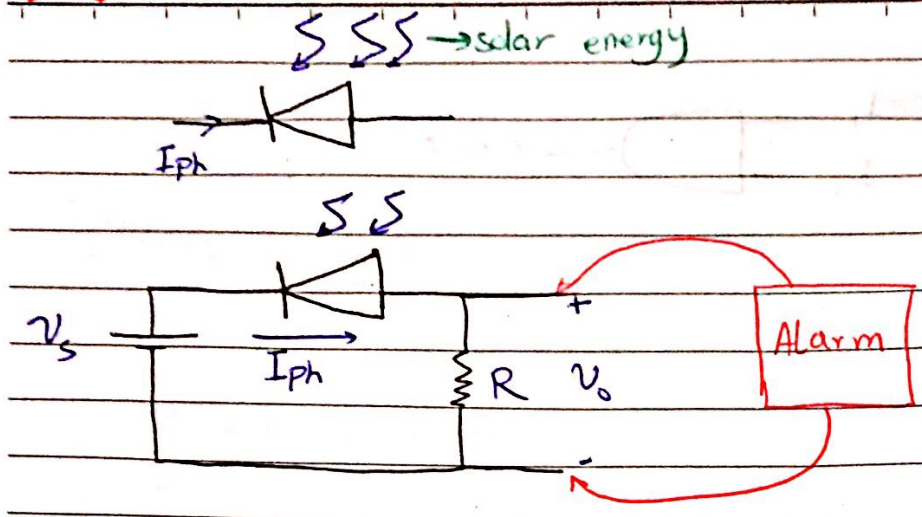 →solar energy
Iph
Vs
Iph
R
Vo
+
-
Alarm